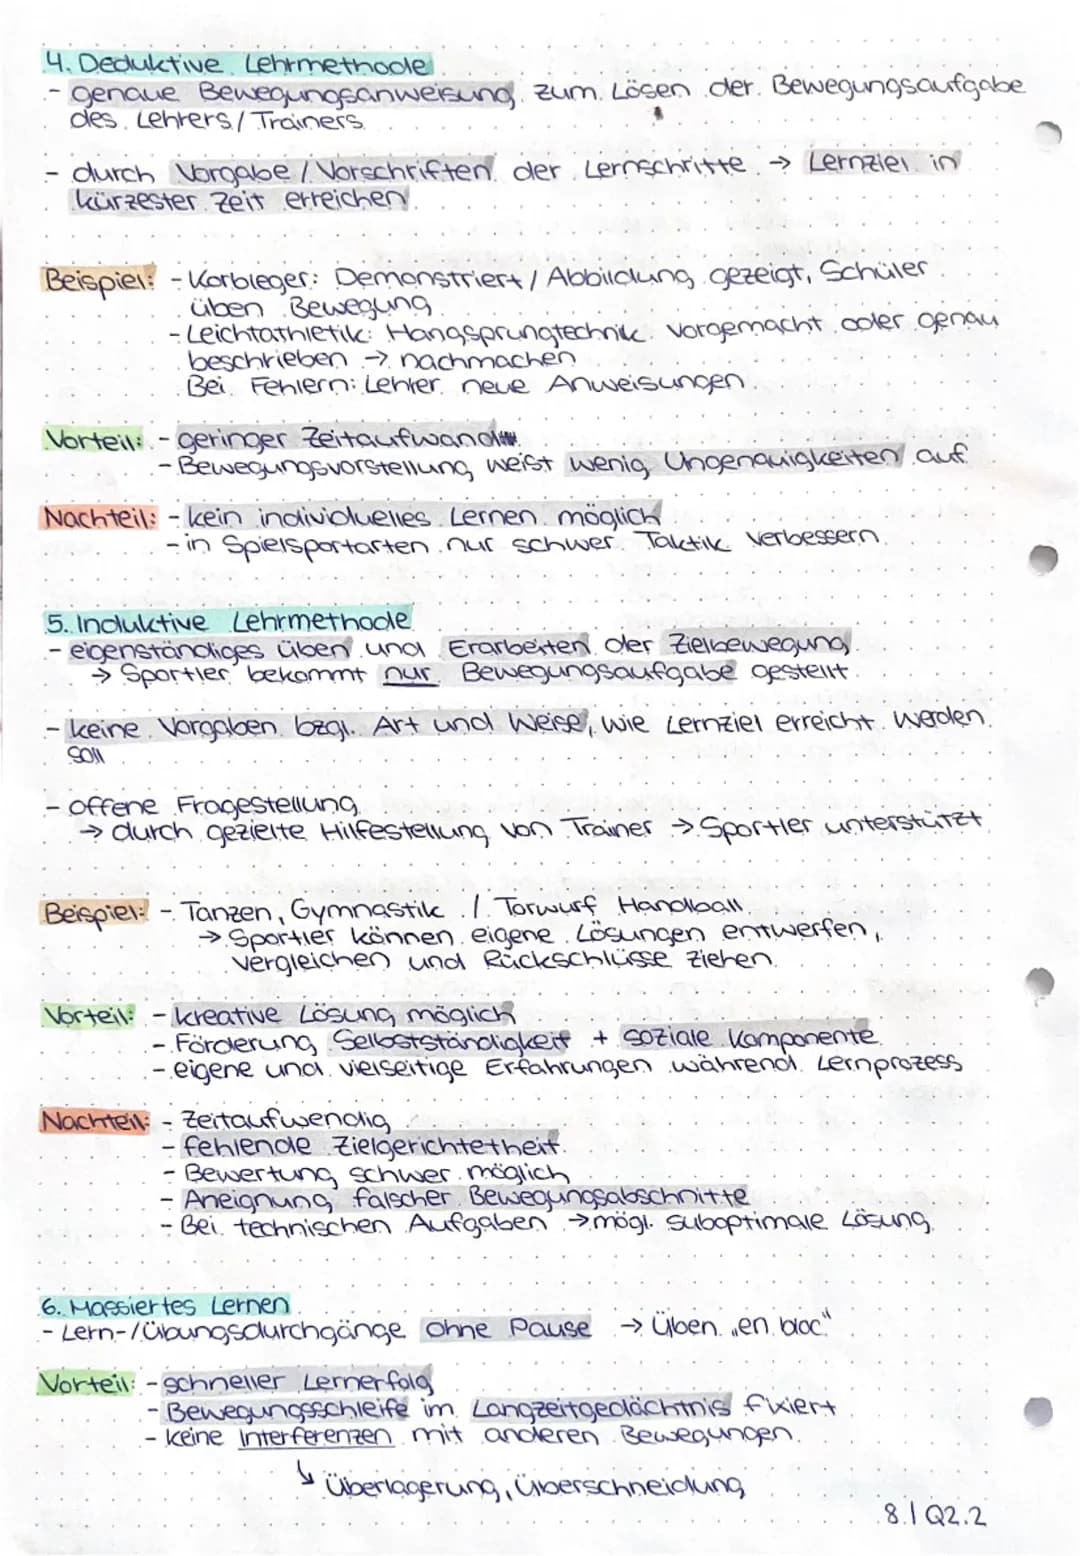 4. Deduktive Lehrmethode
- genaue Bewegungsanweisung zum Lösen der Bewegungsaufgabe
des Lehrers/Trainers
- durch Vorgabe/Vorschriften der Lernschritte → Lernziel in
kürzester Zeit erreichen
Beispiel: - Korbleger: Demonstriert/Abbildung gezeigt, Schüler
üben Bewegung
- Leichtathletik: Hangsprungtechnik vorgemacht oder genau
beschrieben → nachmachen
Bei Fehlern: Lehrer neue Anweisungen
Vorteil: - geringer Zeitaufwand
- Bewegungsvorstellung weist wenig Ungenauigkeiten auf
Nachteil: - kein individuelles Lernen möglich
- in Spielsportarten nur schwer Taktik verbessern
5. Induktive Lehrmethode
- eigenständiges üben und Erarbeiten der Zielbewegung
→ Sportler bekommt nur Bewegungsaufgabe gestellt
- keine Vorgaben bzgl. Art und Weise, wie Lernziel erreicht werden
soll
- offene Fragestellung
→ durch gezielte Hilfestellung von Trainer → Sportler unterstützt
Beispiel: - Tanzen, Gymnastik / Torwurf Handball
→ Sportler können eigene Lösungen entwerfen,
vergleichen und Rückschlüsse ziehen
Vorteil: - kreative Lösung möglich
- Förderung Selbstständigkeit + soziale Komponente
- eigene und vielseitige Erfahrungen während Lernprozess
Nachteil: - Zeitaufwendig
- fehlende Zielgerichtetheit
- Bewertung schwer möglich
- Aneignung falscher Bewegungsabschnitte
- Bei technischen Aufgaben → mögl. suboptimale Lösung
6. Massiertes Lernen
- Lern-/Übungsdurchgänge ohne Pause → Üben „en bloc"
Vorteil: - schneller Lernerfolg
- Bewegungsschleife im Langzeitgedächtnis fixiert
- keine Interferenzen mit anderen Bewegungen
↳ Überlagerung, Überschneidung
8.1 Q2.2